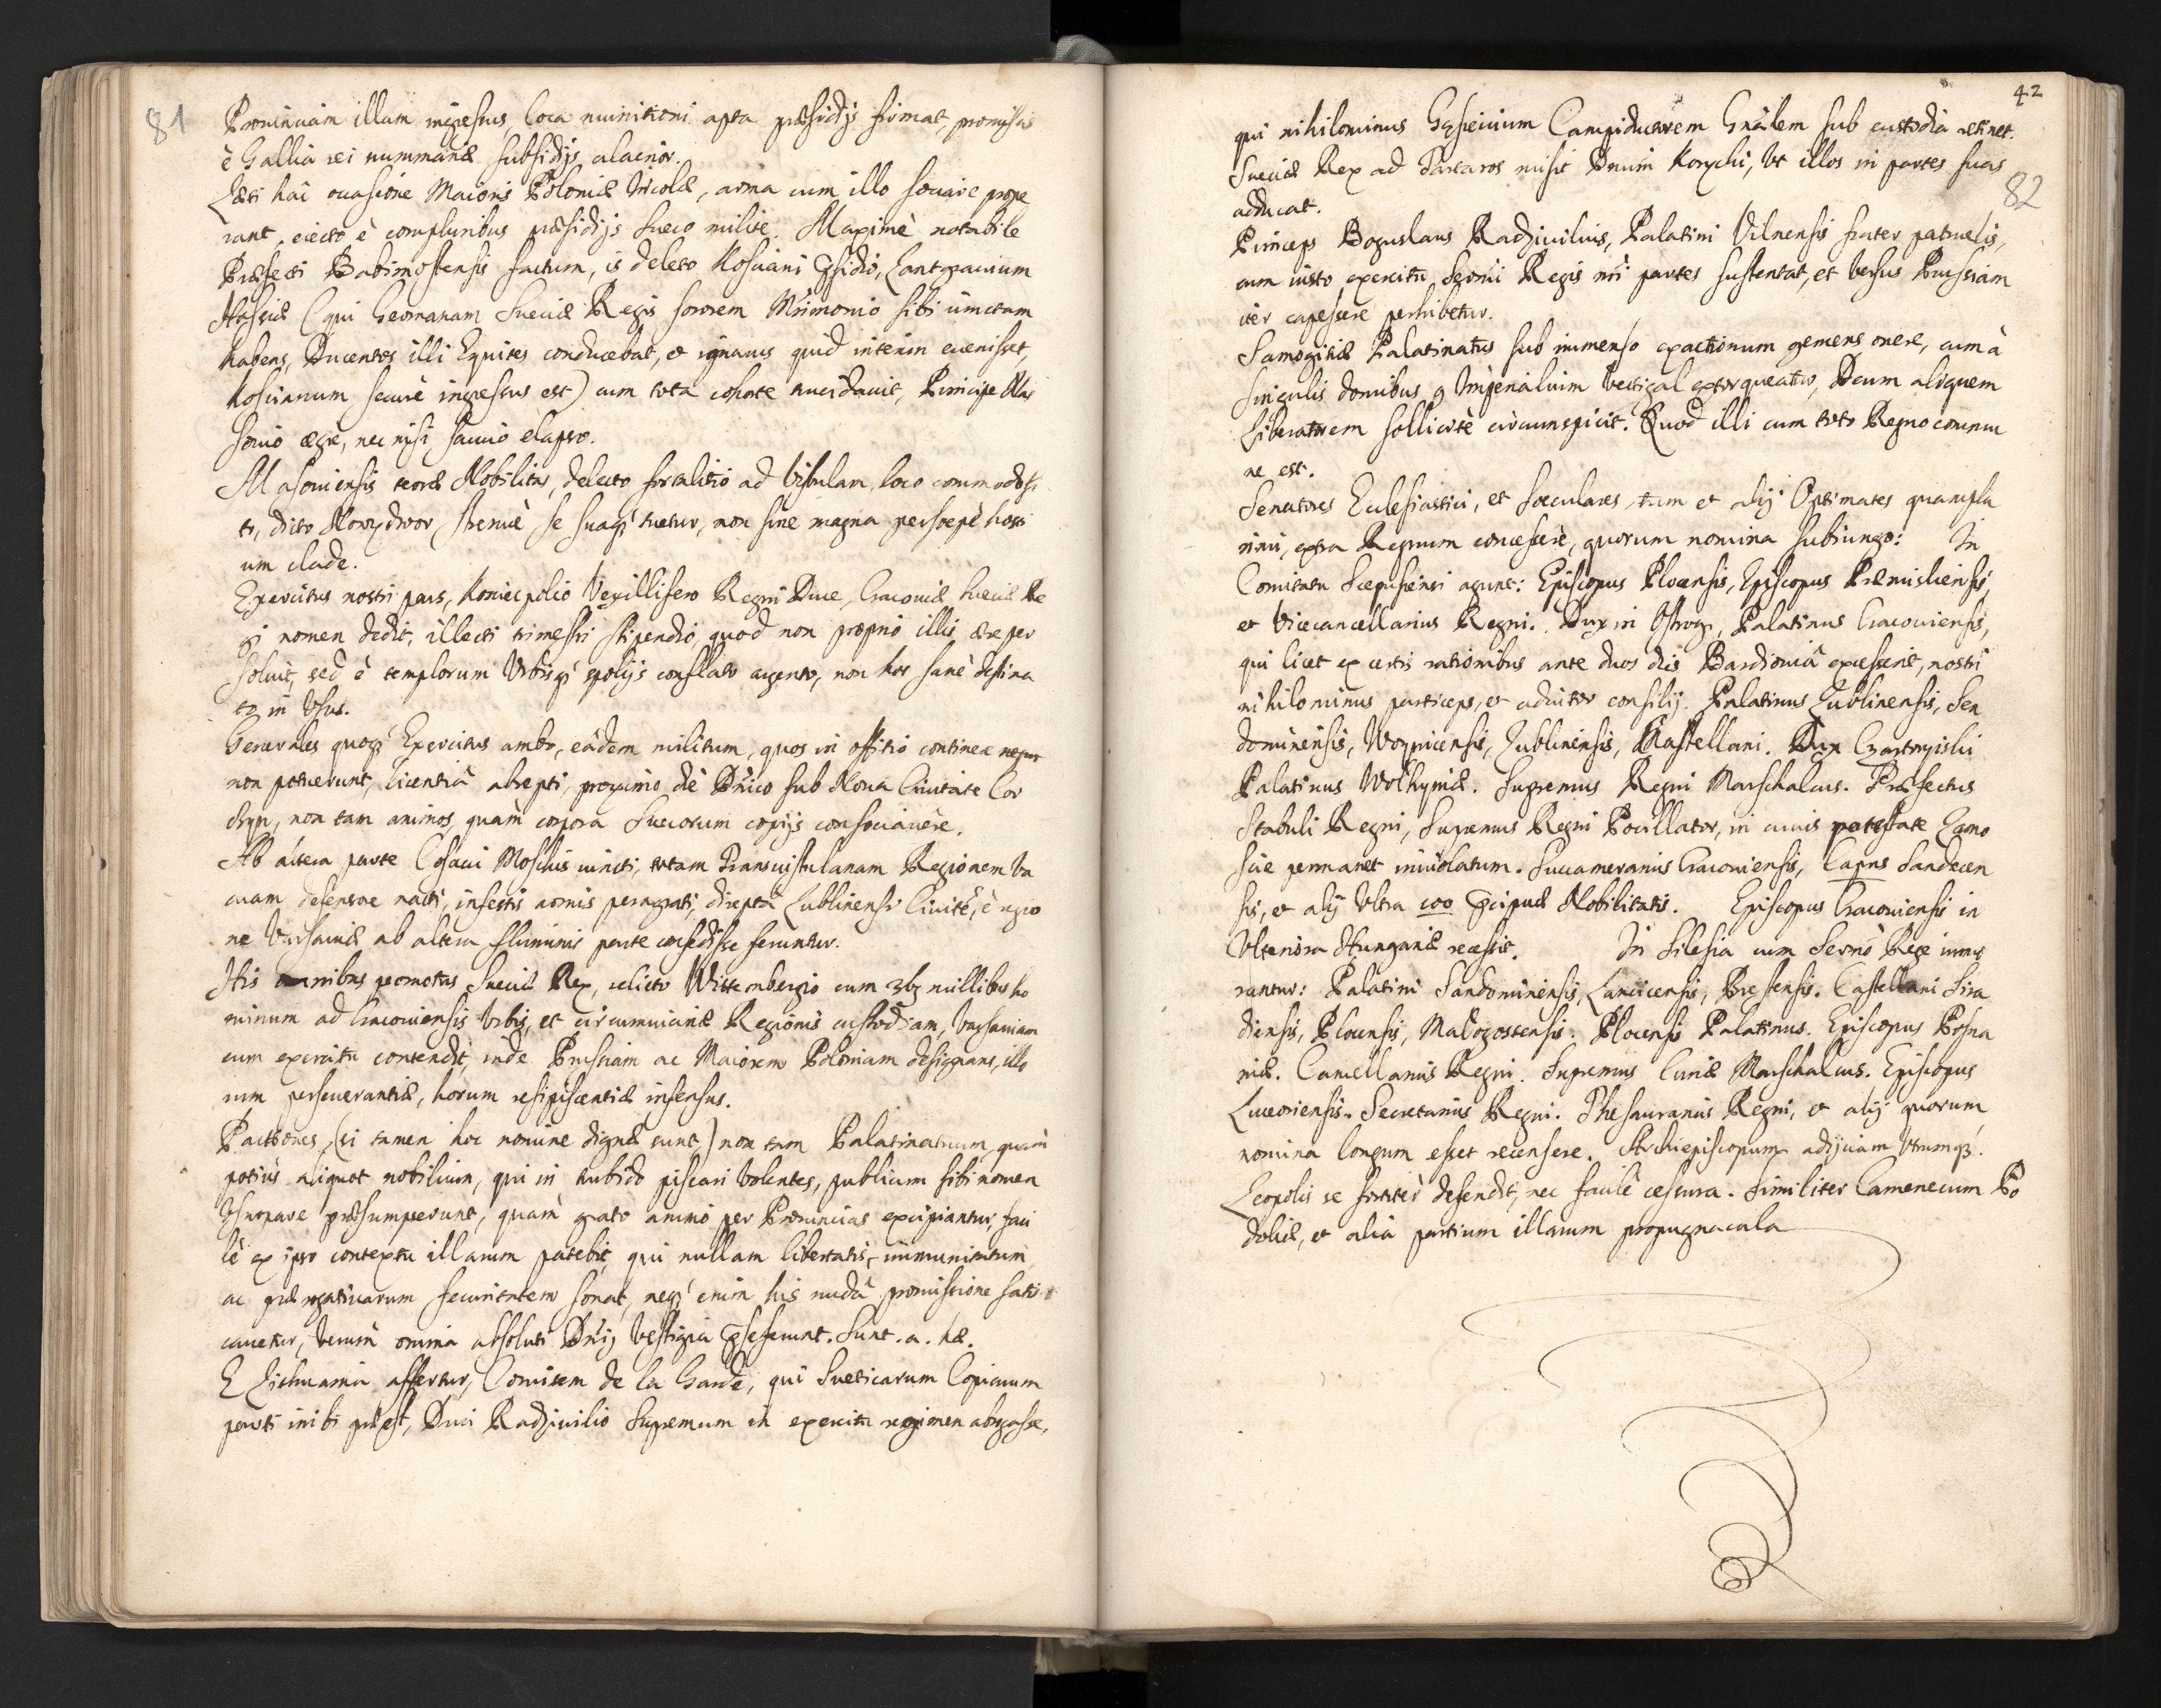 81
Prouinciam illam ingressus loca munitioni apta præsidijs firmat, promissis
è Gallia rei nummariæ subsidijs alacrior.
Læti hac occasione Maioris Poloniæ Incolæ, arma cum illo sociare prope
rant, eiecto è compluribus præsidijs Sueco milite. Maximè notabile
Præfecti Babimostensis factum, is deleto Kosciani Psidio, Lantgrauium
Hassiæ (qui Germanam Sueciæ Regis sororem Mrimonio sibi iunctam
habens, Ducentos illi Equites conducebat, et ignarus quid interim euenisset,
Koscianum securè ingressus est) cum tota cohorte trucidauit, Principe Nas
souio ægre, nec nisi saucio elapso.
Masouiensis teoræ Nobilitas, delecto fortalitio ad Vistulam, loco commodo si
to, dicto Nowydwor, strenuè se suaq, tuetur, non sine magna persoepè hosti
um clade.
Exercitus nostri pars, Koniecpolio Vexillifero Regni Duce, Cracouiæ Sueciæ Re
gi nomen dedit, illecti trimestri stipendio, quod non proprio illis ære per
soluit, sed è templorum Vrbisq, spolijs conflato argento, non hos sanè destina
to in Vsus.
Generales quoq, Exercitus ambo, eadem militum, quos in offitio continere
non potuerunt, licentiâ abrepti, proximo die Dnico sub Noua Ciuitate Cor
chyn, non tam animos quàm corpora Suecorum copijs consociauêre.
Ab altera parte Cosaci Moschis iuncti, totam Transuistulanam Regionem va
cuam defensore nacti, infestis armis peragrati, direptâ Lublinensi Ciuite, è regio
ne Varsauiæ ab altera fluminis parte consedisse feruntur.
His omnibus permotus Sueciæ Rex, relicto Wittembergio cum 3bq millibus ho
minum ad Cracouiensis Vrbis, et circumuicinæ Regionis custodiam, Varsauiam
cum exercitu contendit, inde Prussiam ac Maiorem Poloniam designans, illo
rum perseuerantiæ, horum resipiscentiæ infensus.
Pactiones, (si tamen hoc nomine dignæ sunt) non tam Palatinatuum, quàm
potius aliquot nobilium, qui in turbido piscari volentes, publicum sibi nomen
Vsurpare præsumpserunt, quàm grato animo per Prouincias excipiantur, faci
lè ex ipso contextu illarum patebit, qui nullam libertatis, immunitatum
ac prærogatiuarum securitatem sonat, neq, enim his nudâ promissione satis
cauetur, verùm omnia absoluti Dnij Vestigia Pseferunt. Sunt. a. hæ.
E Lithuania affertur, Comitem de la Garde, qui Sueticarum Copiarum
parti inibi præest, Duci Radziuilio Supremum in exercitu regimen abrogasse,
42
82
qui nihilominus Gąsieuium Campiductorem Gnâlem sub custodia retinet.
Sueciæ Rex ad Tartaros misit Dnum Korycki, Vt illos in partes suas
adducat.
Princeps Boguslaus Radziuilius, Palatini Vilnensis frater patruelis,
cum iusto exercitu Sermi Regis nri partes sustentat, et versus Prussiam
iter capessere perhibetur.
Samogitiæ Palatinatus sub immenso exactionum gemens onere, cum à
singulis domibus 9 Imperialium vectigal extorqueatur, Deum aliquem
Liberatorem sollicitè circumspicit. Quod illi cum toto Regno commu
ne est.
Senatores Eclesiastici, et sæculares, tum et alij Optimates quamplu
rimi, extra Regnum concessere, quorum nomina subiungo: In
Comitatu Scepusiensi agunt: Episcopus Plocensis, Episcopus Præmisliensis,
et Vicecancellarius Regni. Dux in Ostrog, Palatinus Cracouiensis,
qui licet ex certis rationibus ante duos dies Bardiouiâ excesserit, nostri
nihilominus particeps, et adiutor consilij. Palatinus Lublinensis, Sen
domirensis, Woynicensis, Lublinensis, Kastellani. Dux Czartoryiski
Palatinus Wolhyniæ. Supremus Regni Marschalcus. Præfectus
Stabuli Regni, Supremus Regni Pocillator, in cuius potestate Zamo
scie permanet inuiolatum. Succamerarius Cracouiensis, Capns Sandecen
sis, et alij Vltra 600 Pcipuæ Nobilitatis. Episcopus Cracouiensis in
Vlteriora Hungariæ recessit. In Silesia cum Sermo Rege immo
rantur: Palatini Sandomiriensis, Lancicensis, Brestensis. Castellani Sira
diensis, Plocensis, Malogostensis. Plocensis Palatinus. Episcopus Posna
niæ. Cancellarius Regni. Supremus Curiæ Marschalcus. Episcopus
Luceoriensis. Secretarius Regni. Thesaurarius Regni, et alij quorum
nomina longum esset recensere. Archiepiscopum adijciam Vtrumq,.
Leopolis se fortitèr defendit, nec facilè cessura. Similiter Camenecum Po
doliæ, et alia partium illarum propugnacula